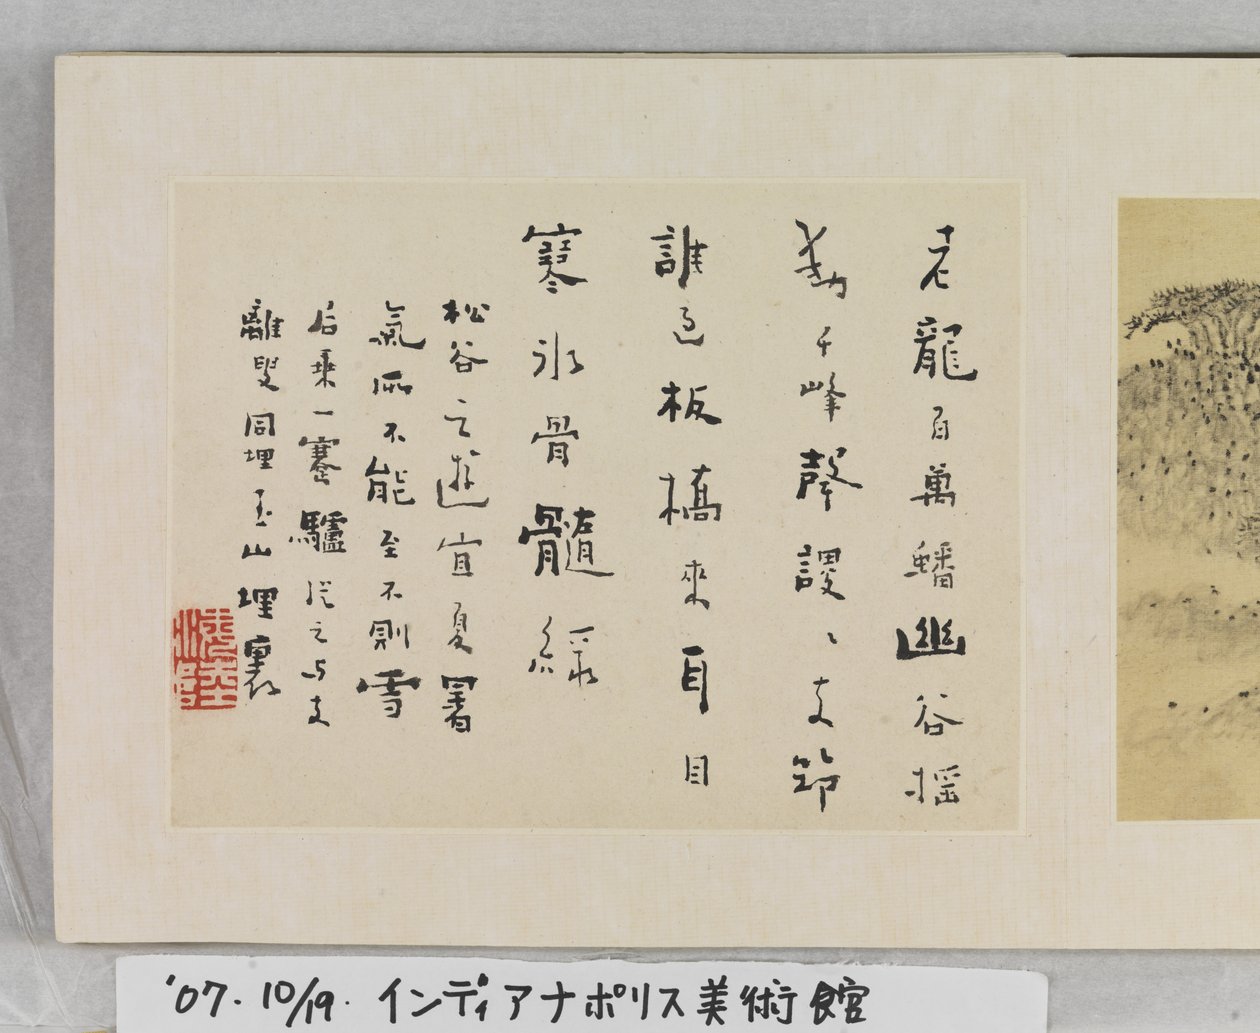 老龍百萬蟠幽谷搖
動千峰聲謖〻支節
誰過板橋來耳目
寒冰骨髓綠
松谷之遊宜夏暑
氣所不能至不則雪
后乘一蹇驢從之与支
離叟同埋玉山裏
'07.10/19. インディアナポリス美術館